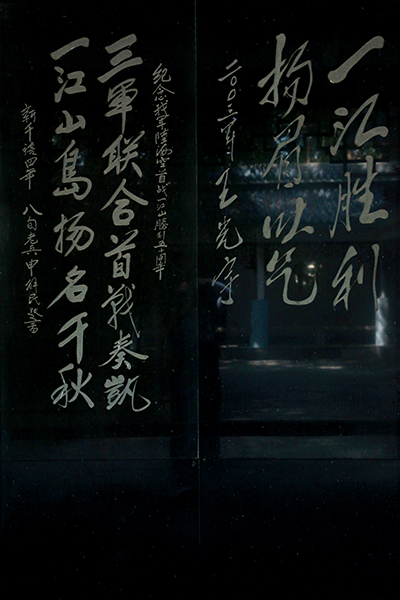 一江胜利
扬眉吐气
二〇〇三年 王克宇
纪念我军陆海空首战一江山胜利五十周年
三军联合首战奏凯
一江山岛扬名千秋
新千禧四年 八旬老兵申科民签书